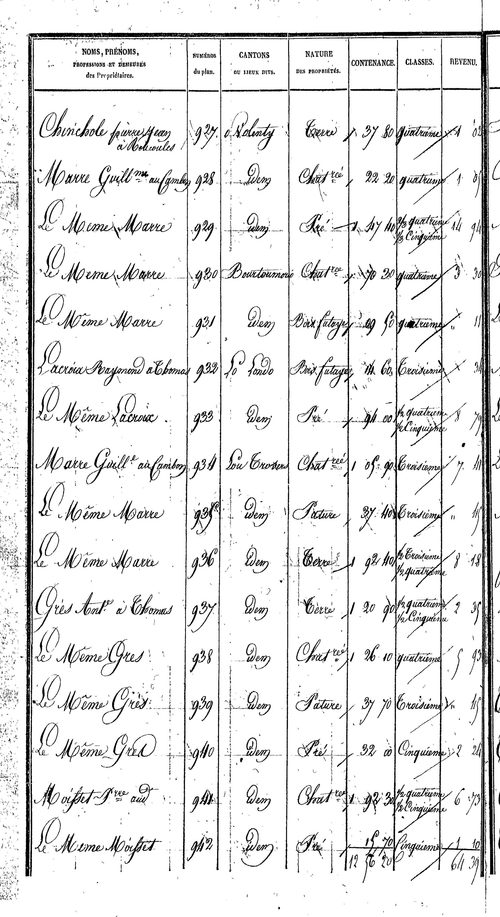 NOMS, PRÉNOMS, PROFESSIONS ET DEMEURES des Propriétaires. NUMÉROS du plan. CANTONS OU LIEUX DITS. NATURE DES PROPRIÉTÉS. CONTENANCE. CLASSES. REVENU.
Chinchole pierre Jean 927 Terre 1 37 80 quatrième 1
Marre Guill.me au Cambon 928 Idem Chat.rée 22 20 quatrième 1 05
Le Meme Marre 929 Idem Pré 1 47 40 quatrième Cinquième 14 94
Le Meme Marre 930 Chat.rée 70 30 quatrième 3 30
Le Même Marre 931 Idem Bois futaye 50 quatrième 11
Lacroix Raymond a Thomas 932 Lo Lando Bois futaye 14 60 Troisième
Le Même Lacroix 933 Idem Pré 94 00 ½ quatrième ½ Cinquième 8
Marre Guill.e au Cambon 934 Lou Chat.rée 1 05 90 Troisième 7 41
Le Même Marre 935 Idem Pature 37 40 Troisième 15
Le Même Marre 936 Idem Terre 1 92 40 ½ Troisième ½ quatrième 8 18
Grès Ant.ne a Thomas 937 Idem Terre 1 20 90 ½ quatrième ½ Cinquième 2 35
Le Même Grès 938 Idem Chat.rée 1 26 10 quatrième 5 93
Le Même Grès 939 Idem Pature 37 70 Troisième 15
Le Même Grès 940 Idem Pré 32 00 Cinquième 2 24
Moisset P.rre aud. 941 Idem Chat.rée 1 92 30 ½ quatrième ½ Cinquième 6 73
Le Meme Moisset 942 Idem Pré 15 70 Cinquième 1 10
12 56 20 64 39